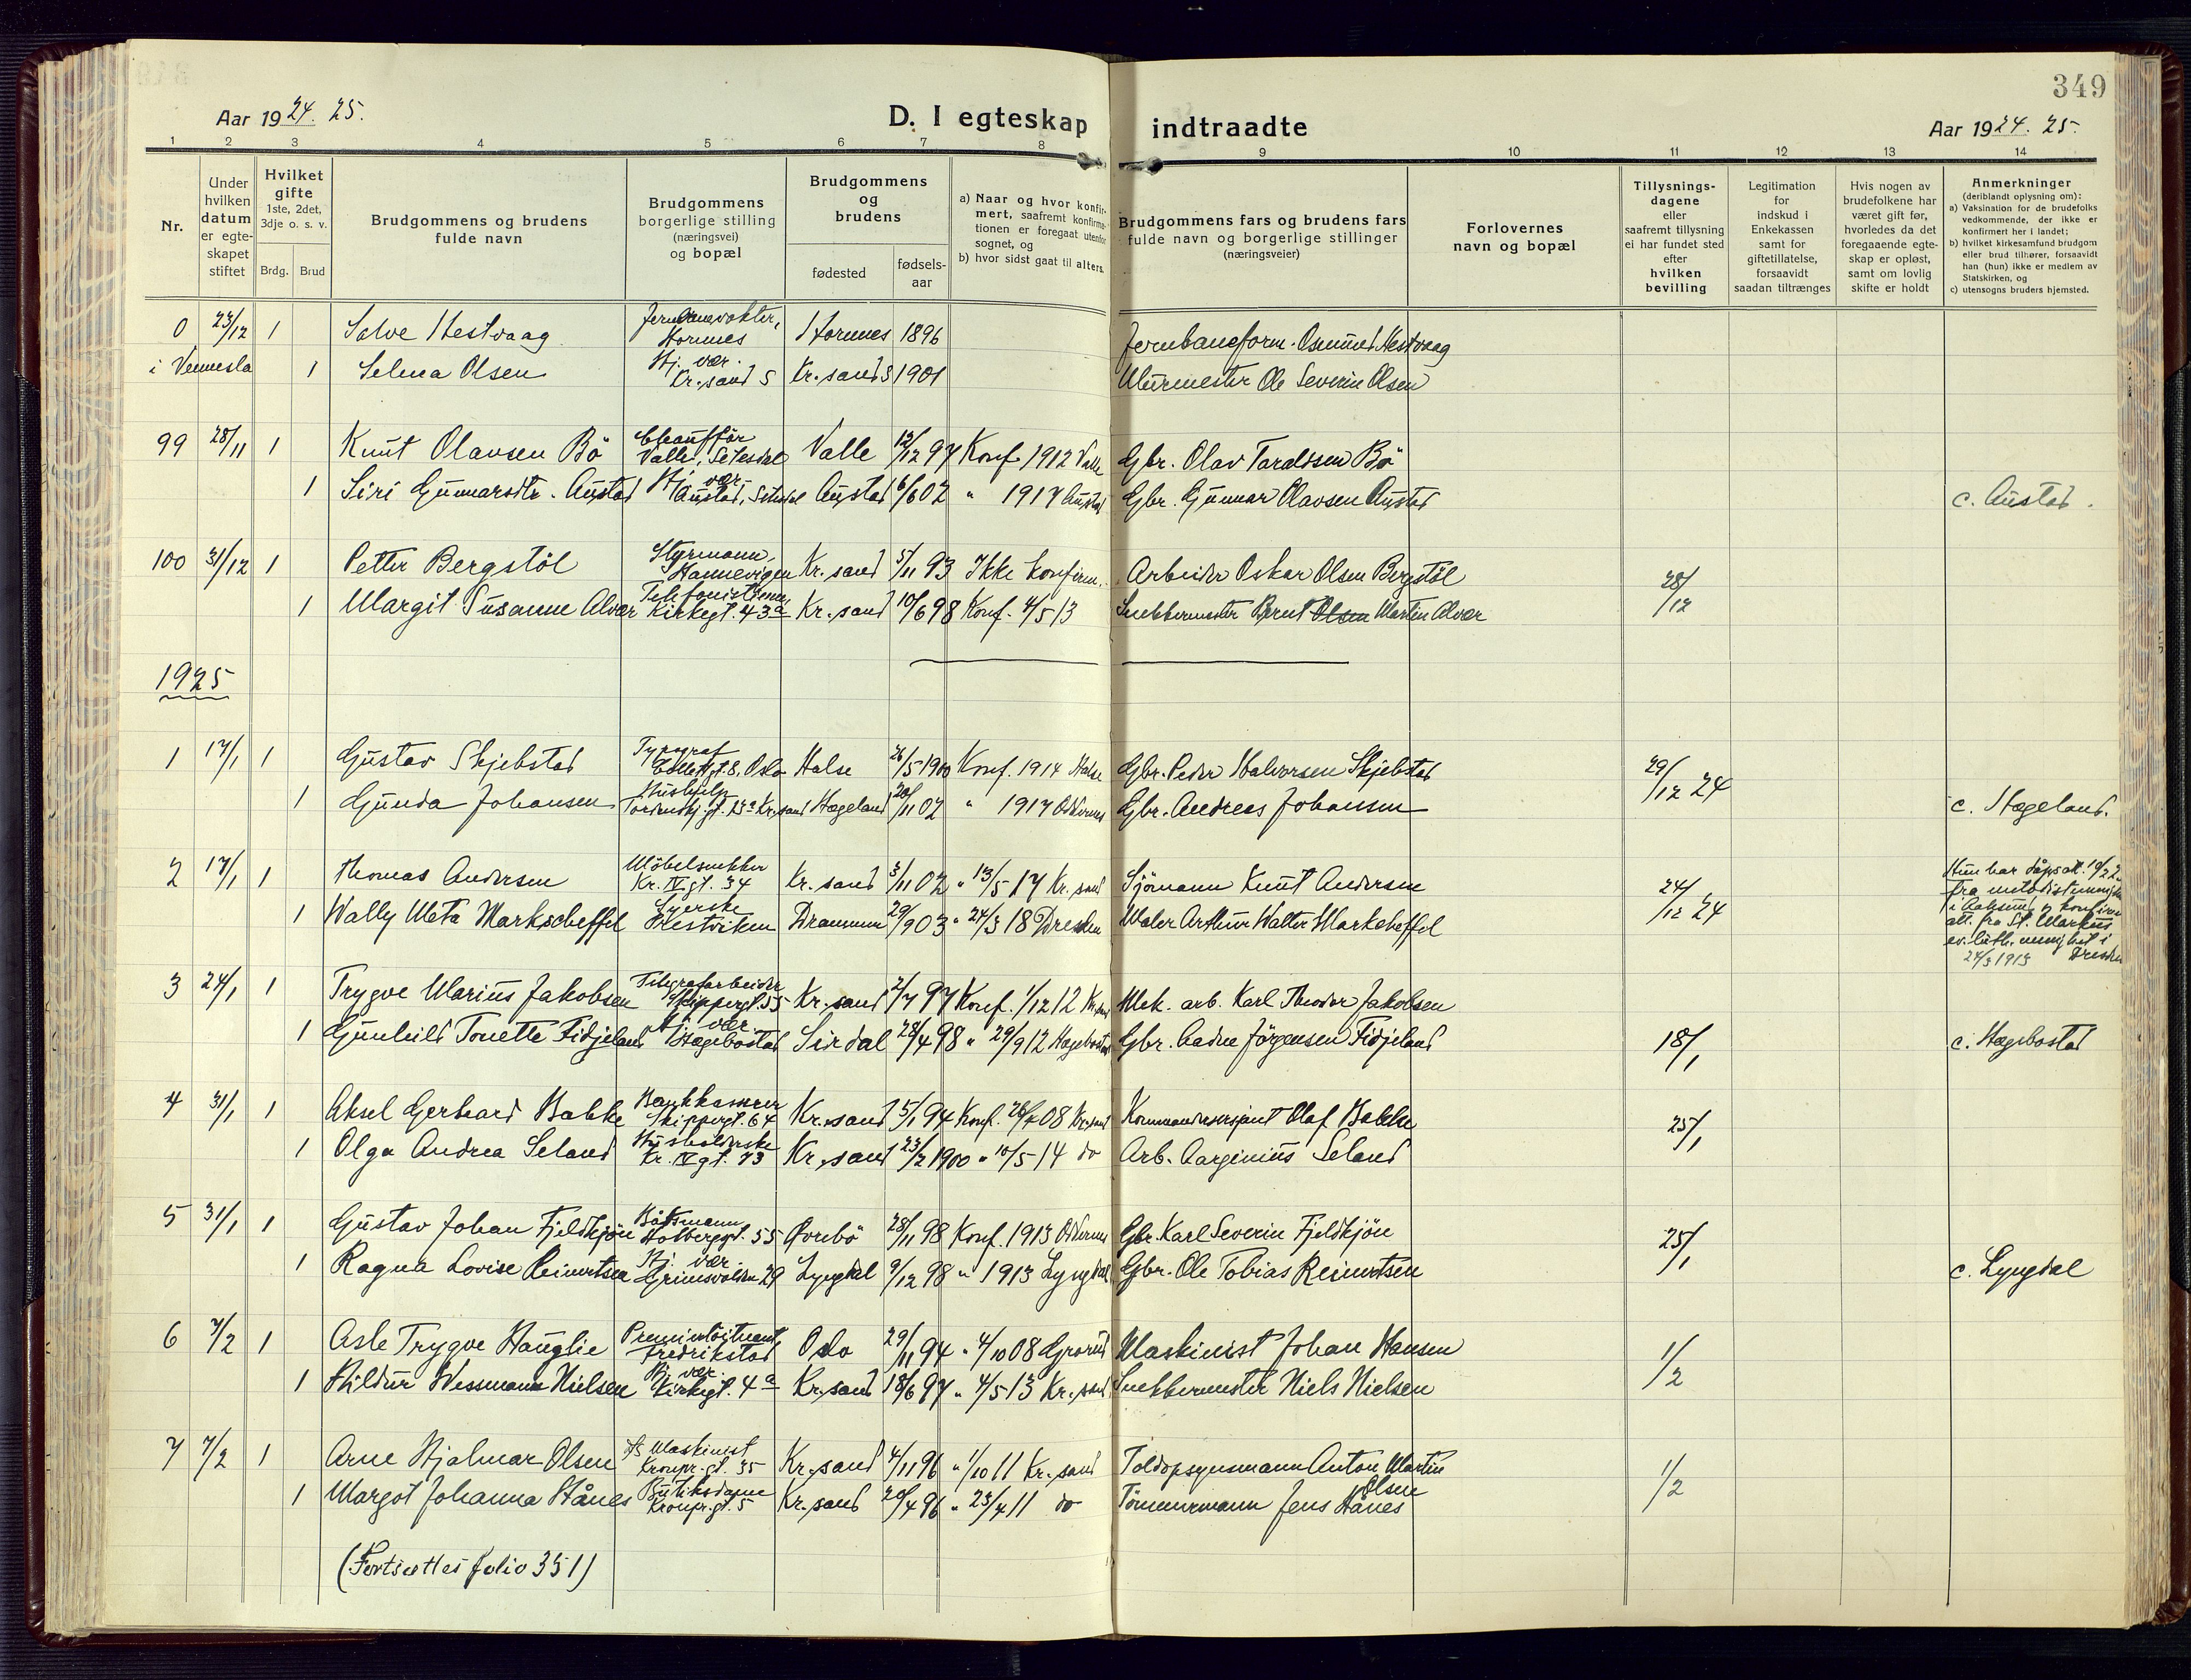 349
Aar 1924. 25.
D. I egteskap indtraadte
Aar 1924. 25.
1 2 3 4 5 6 7 8 9 10 11 12 13 14
Nr.
Under hvilken datum er egteskapet stiftet
Hvilket gifte 1ste, 2det, 3dje o. s. v.
Brdg. Brud
Brudgommens og brudens fulde navn
Brudgommens borgerlige stilling (næringsvei) og bopæl
Brudgommens og brudens
fødested
fødsels-aar
a) Naar og hvor konfirmert, saafremt konfirmationen er foregaat utenfor sognet, og
b) hvor sidst gaat til alters.
Brudgommens fars og brudens fars fulde navn og borgerlige stillinger (næringsveier)
Forlovernes navn og bopæl
Tillysnings-dagene eller saafremt tillysning ei har fundet sted efter hvilken bevilling
Legitimation for indskud i Enkekassen samt for giftetillatelse, forsaavidt saadan tiltrænges
Hvis nogen av brudefolkene har været gift før, hvorledes da det foregaaende egteskap er opløst, samt om lovlig skifte er holdt
Anmerkninger (deriblandt oplysning om):
a) Vaksination for de brudefolks vedkommende, der ikke er konfirmert her i landet;
b) hvilket kirkesamfund brudgom eller brud tilhører, forsaavidt han (hun) ikke er medlem av Statskirken, og
c) utensogns bruders hjemsted.
0 23/12 1 Salve Hestvaag Jernbanevokter, Hornnes Hornnes 1896 Jernbaneform. Osmund Hestvaag
i Vennesla 1 Selma Olsen Hj. vær. Kr.sand S Kr.sand S 1901 Murmester Ole Severin Olsen
99 28/11 1 Knut Olavsen Bö Chaufför Valle, Setesdal Valle 12/12 97 Konf. 1912 Valle Gbr. Olav Taraldsen Bö
1 Siri Gunnarsdtr. Austad Hj. vær. Austad, Setesdal Austad 6/6 02 " 1917 Austad Gbr. Gunnar Olavsen Austad c. Austad.
100 31/12 1 Petter Bergstöl Styrmann, Hannevigen Kr.sand 5/11 93 Ikke konfirm. Arbeider Oskar Olsen Bergstöl 28/12
1 Margit Susanne Alvær Telefonistinne, Kirkegt. 43a Kr.sand 10/6 98 Konf. 4/5 13 Snekkermester Bernt Olsen Martin Alvær
1925
1 17/1 1 Gustav Skjebstad Typograf gt. 8, Oslo Halse 26/5 1900 Konf. 1914 Halse Gbr. Peder Halvorsen Skjebstad 29/12 24
1 Gunda Johansen Hushjelp Tordenskj.gt. Kr.sand Hægeland 20/11 02 " 1917 Oddernes Gbr. Andreas Johansen c. Hægeland.
2 17/1 1 Thomas Andersen Möbelsnekker Kr. IV gt. 34 Kr.sand 3/11 02 " 13/5 17 Kr.sand Sjömann Knut Andersen 24/12 24
1 Wally Meta Markscheffel Syerske Hestviken Drammen 29/9 03 " 24/3 18 Dresden Maler Arthur Walter Markscheffel
Hun har dåpsatt. 19/2 22 fra metodistmenigh. i og konfirm. att. fra St. Markus ev. luth. menighet i Dresden 24/3 1918
3 24/1 1 Trygve Marius Jakobsen Telegrafarbeider Skippergt. 55 Kr.sand 2/7 97 Konf. 1/12 12 Kr.sand Mek. arb. Karl Theodor Jakobsen 18/1
1 Gunhild Tonette Fidjeland Hj. vær. Hægebostad Sirdal 28/4 98 " 29/9 12 Hægebostad Gbr. Aadne Jörgensen Fidjeland c. Hægebostad
4 31/1 1 Aksel Gerhard Bakke Bankkasserer Skippergt. 64 Kr.sand 5/1 94 Konf. 08 Kr.sand Kommandersersjant Olaf Bakke 25/1
1 Olga Andrea Seland Husholderske Kr. IV gt. 73 Kr.sand 23/2 1900 " 10/5 14 do Arb. Aarginius Seland
5 31/1 1 Gustav Johan Fjeldkjön Båtsmann Holbergsgt. 55 Øvrebö 28/11 98 Konf. 1913 Oddernes Gbr. Karl Severin Fjeldkjön 25/1
1 Ragna Lovise Reinertsen Hj. vær. Grimsvollen 29 Lyngdal 9/12 98 " 1913 Lyngdal Gbr. Ole Tobias Reinertsen c. Lyngdal
6 7/2 1 Asle Trygve Hauglie Premierlöitnant, Fredrikstad Oslo 29/11 94 " 4/10 08 Grorud Maskinist Johan Hansen 1/2
1 Hildur Wessmann Nielsen Hj. vær. Kirkegt. 4a Kr.sand 18/6 97 " 4/5 13 Kr.sand Snekkermester Niels Nielsen
7 7/2 1 Arne Hjalmar Olsen Maskinist Kronpr.gt. 35 Kr.sand 4/11 96 " 1/10 11 Kr.sand Toldopsynsmann Anton Martin Olsen 1/2
1 Margot Johanna Hånes Butiksdame Kronpr.gt. 5 Kr.sand 20/4 96 " 23/4 11 do Tömmermann Jens Hånes
(Fortsættes folio 351)